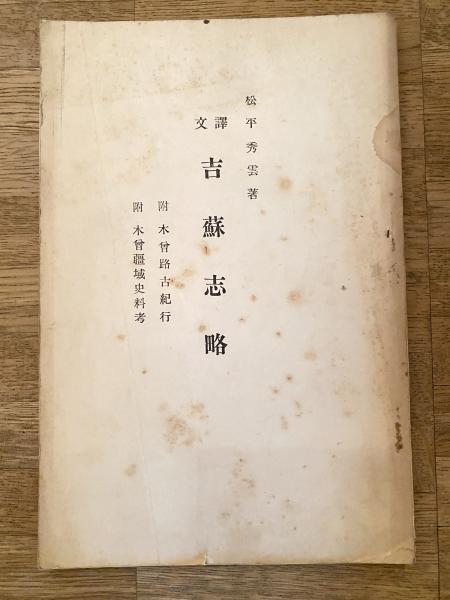 松平秀雲著
譯文
吉蘇志略
附 木曾路古紀行
附 木曾疆域史料考